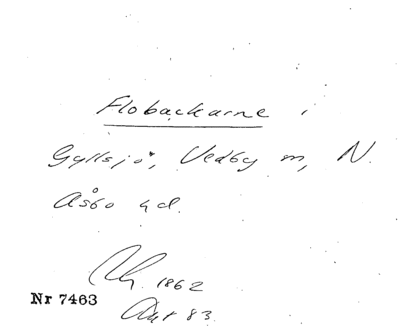 Flobackarne i
Gyllsjö, Vedby m, N.
Åsbo hd.
1862
Nr 7463
Akt 83